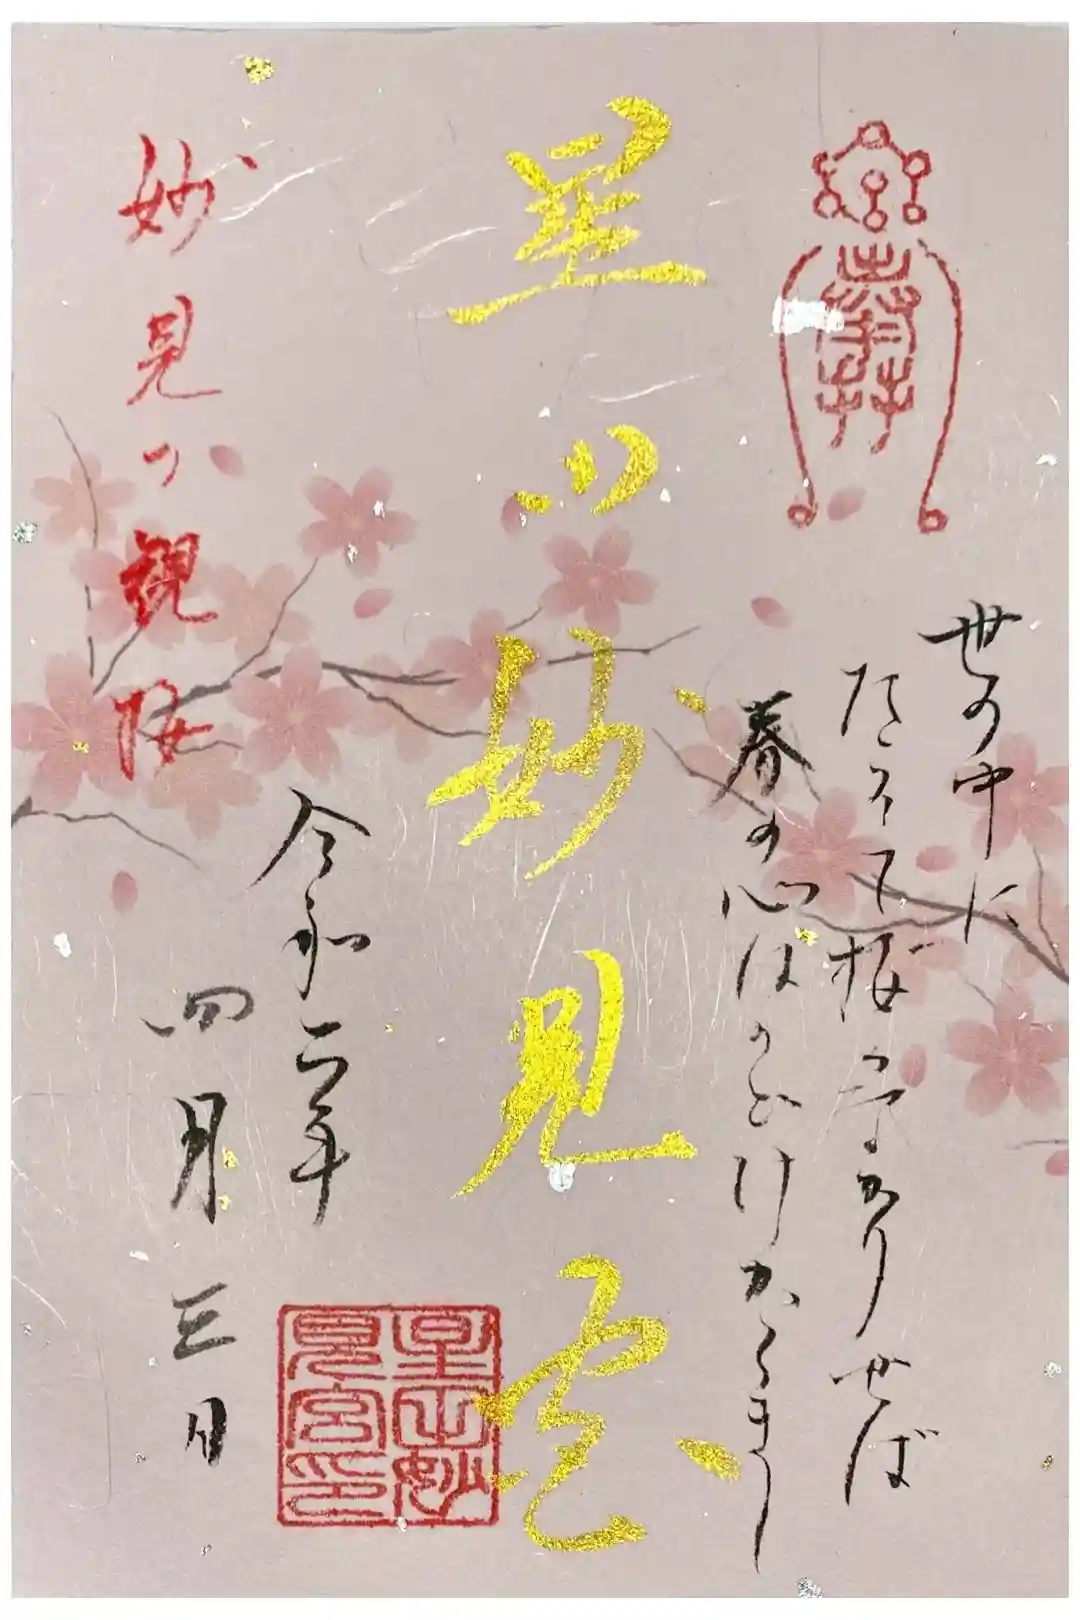 世の中に
たえて桜のなかりせば
春の心はのどけからまし
星山妙見宮
星山妙見宮印
令和二年
四月三日
妙見の観桜